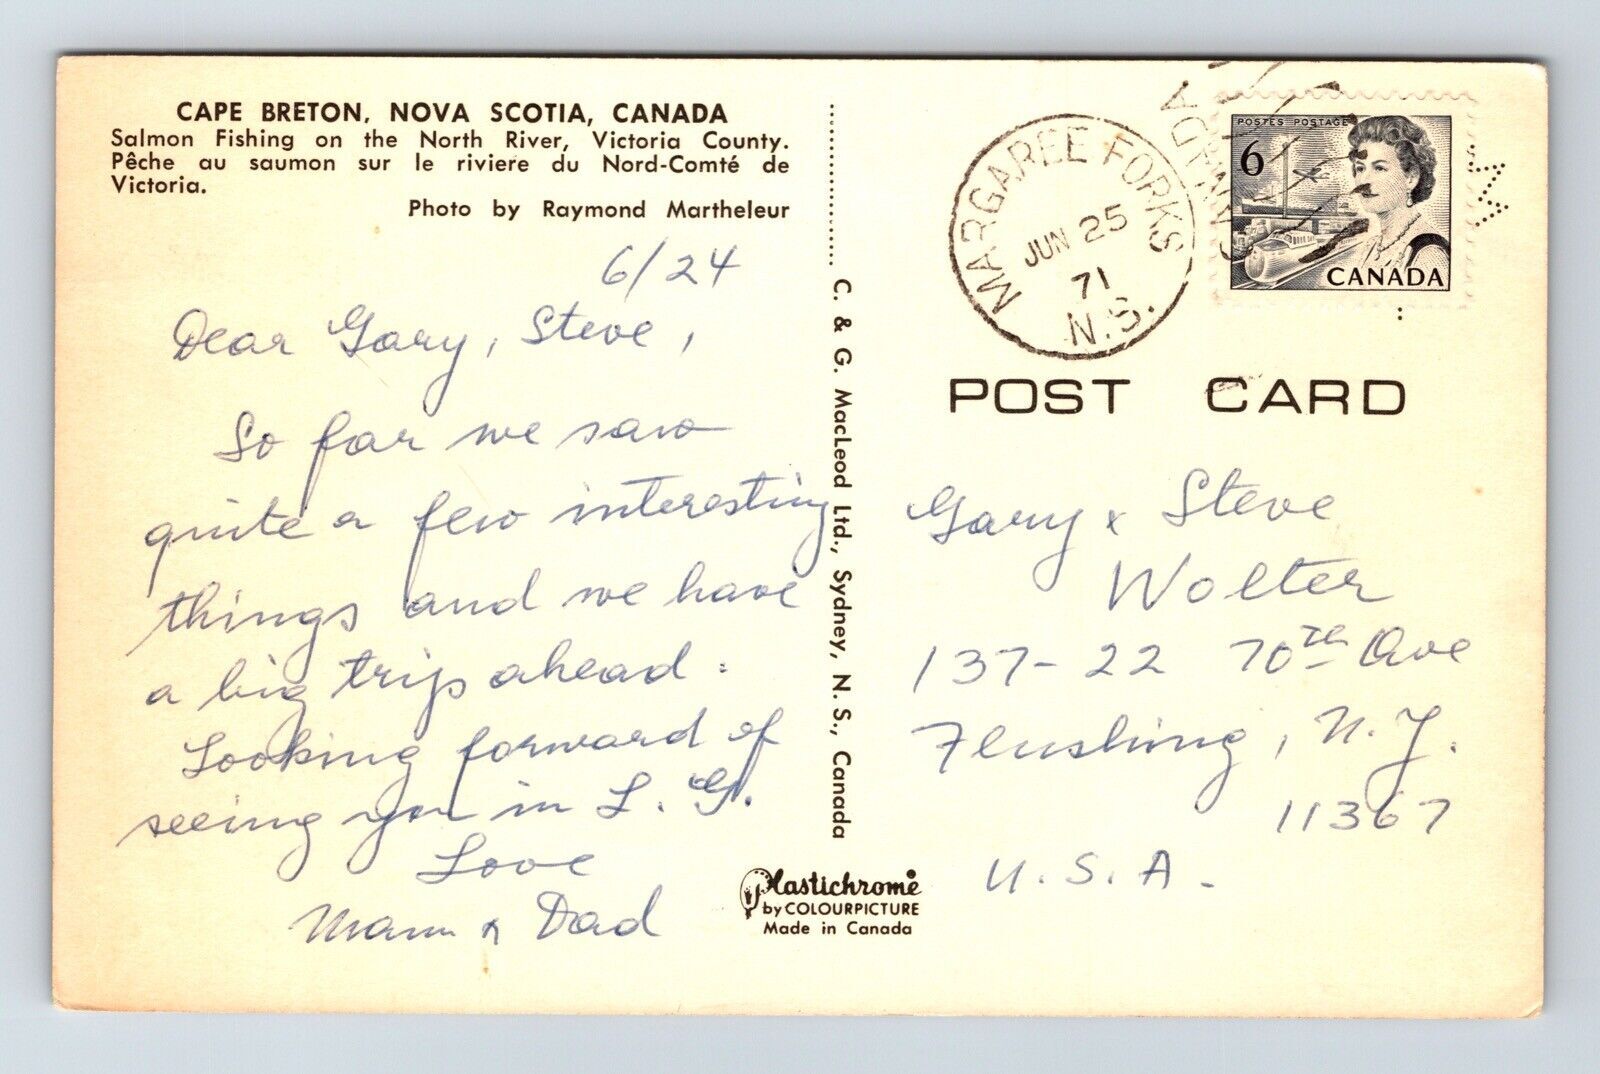 CAPE BRETON, NOVA SCOTIA, CANADA
Salmon Fishing on the North River, Victoria County.
Pêche au saumon sur le riviere du Nord-Comté de
Victoria.
Photo by Raymond Martheleur
6/24
Dear Gary, Steve,
So far we saw
quite a few interesting
things and we have
a big trip ahead.
Looking forward of
seeing you in L. G.
Love
Mam & Dad
C. & G. MacLeod Ltd., Sydney, N. S., Canada
Plastichrome
by COLOURPICTURE
Made in Canada
MARGAREE FORKS
JUN 25
71
N.S.
CANADA
POSTES POSTAGE
6
CANADA
POST CARD
Gary & Steve
Wolter
137-22 70th Ave
Flushing, N.Y.
11367
U.S.A.